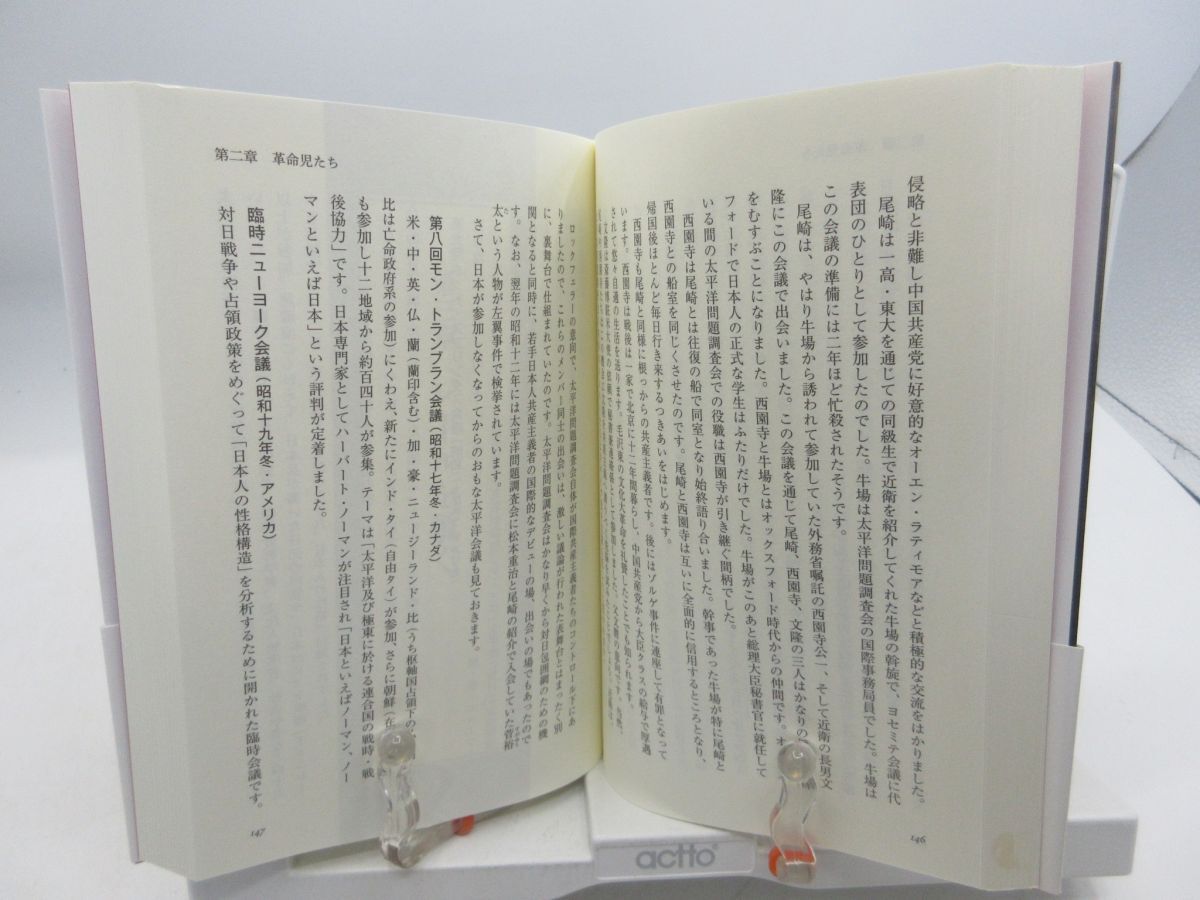 侵略と非難し中国共産党に好意的なオーエン・ラティモアなどと積極的な交流をはかりました。
尾崎は一高・東大を通じての同級生で近衛を紹介してくれた牛場の斡旋で、ヨセミテ会議に代
表団のひとりとして参加したのでした。牛場は太平洋問題調査会の国際事務局員でした。牛場は
この会議の準備には二年ほど忙殺されたそうです。
尾崎は、やはり牛場から誘われて参加していた外務省嘱託の西園寺公一、そして近衛の長男文
隆にこの会議で出会いました。この会議を通じて尾崎、西園寺、文隆の三人はかなりの
をむすぶことになりました。西園寺と牛場とはオックスフォード時代からの仲間です。オ
フォードで日本人の正式な学生はふたりだけでした。牛場がこのあと総理大臣秘書官に就任して
いる間の太平洋問題調査会での役職は西園寺が引き継ぐ間柄でした。
西園寺は尾崎とは往復の船で同室となり始終語り合いました。幹事であった牛場が特に尾崎と
西園寺との船室を同じくさせたのです。尾崎と西園寺は互いに全面的に信用するところとなり、
帰国後ほとんど毎日行き来するつきあいをはじめます。
西園寺も尾崎と同様に根っからの共産主義者です。後にはゾルゲ事件に連座して有罪となって
います。西園寺は戦後は一家で北京に十二年間暮らし、中国共産党から大臣クラスの給与で厚遇
されて悠々自適の生活を送ります。毛沢東の文化大革命を礼賛したことでも知られます。
146
第二章 革命児たち
ロックフェラーの意向で、太平洋問題調査会自体が国際共産主義者たちのコントロール下にあ
りましたので、これらのメンバー同士の出会いは、激しい議論が行われた表舞台とはまったく別
に、裏舞台で仕組まれていたのです。太平洋問題調査会はかなり早くから対日包囲網のための機
関となると同時に、若手日本人共産主義者の国際的なデビューの場、出会いの場でもあったので
す。なお、翌年の昭和十二年には太平洋問題調査会に松本重治と尾崎の紹介で入会していた菅裕
太という人物が左翼事件で検挙されています。
さて、日本が参加しなくなってからのおもな太平洋会議も見ておきます。
第八回モン・トランブラン会議(昭和十七年冬・カナダ)
米・中・英・仏・蘭(蘭印含む)・加・豪・ニュージーランド・比(うち枢軸国占領下の
比は亡命政府系の参加)にくわえ、新たにインド・タイ(自由タイ)が参加、さらに朝鮮(在
も参加し十二地域から約百四十人が参集。テーマは「太平洋及び極東に於ける連合国の戦時・戦
後協力」です。日本専門家としてハーバート・ノーマンが注目され「日本といえばノーマン、ノー
マンといえば日本」という評判が定着しました。
臨時ニューヨーク会議(昭和十九年冬・アメリカ)
対日戦争や占領政策をめぐって「日本人の性格構造」を分析するために開かれた臨時会議です。
147
actto